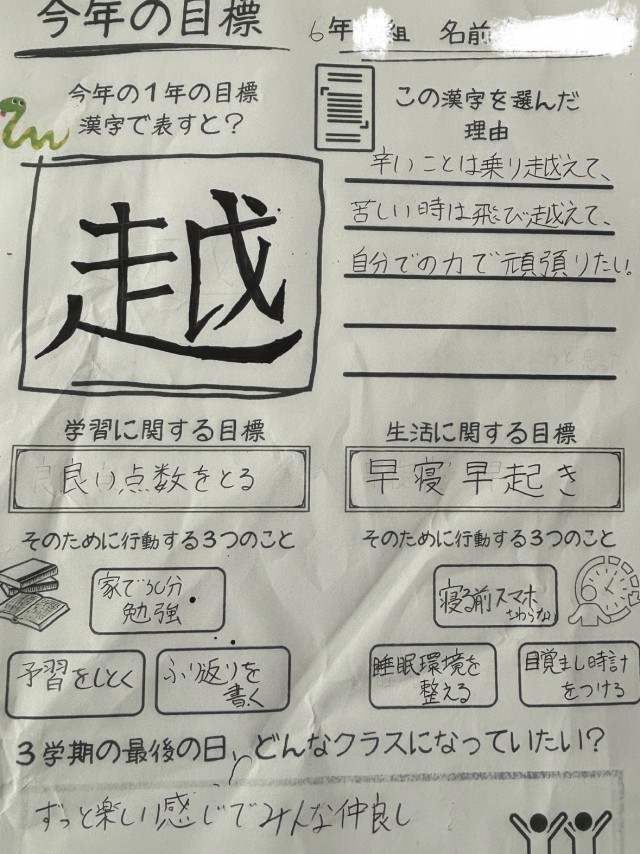 今年の目標
6年 組 名前
今年の1年の目標
漢字で表すと？
越
この漢字を選んだ
理由
辛いことは乗り越えて、
苦しい時は飛び越えて、
自分での力で頑張りたい。
学習に関する目標
良い点数をとる
そのために行動する3つのこと
家で30分
勉強
予習をしとく
ふり返りを
書く
生活に関する目標
早寝早起き
そのために行動する3つのこと
寝る前スマホ
さわらない
睡眠環境を
整える
目覚まし時計
をつける
3学期の最後の日、どんなクラスになっていたい？
ずっと楽しい感じでみんな仲良し